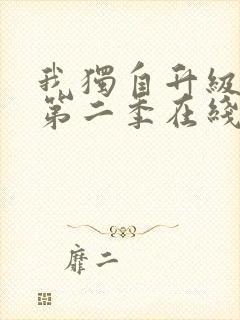 我獨自升級
第二季在綫
靡二